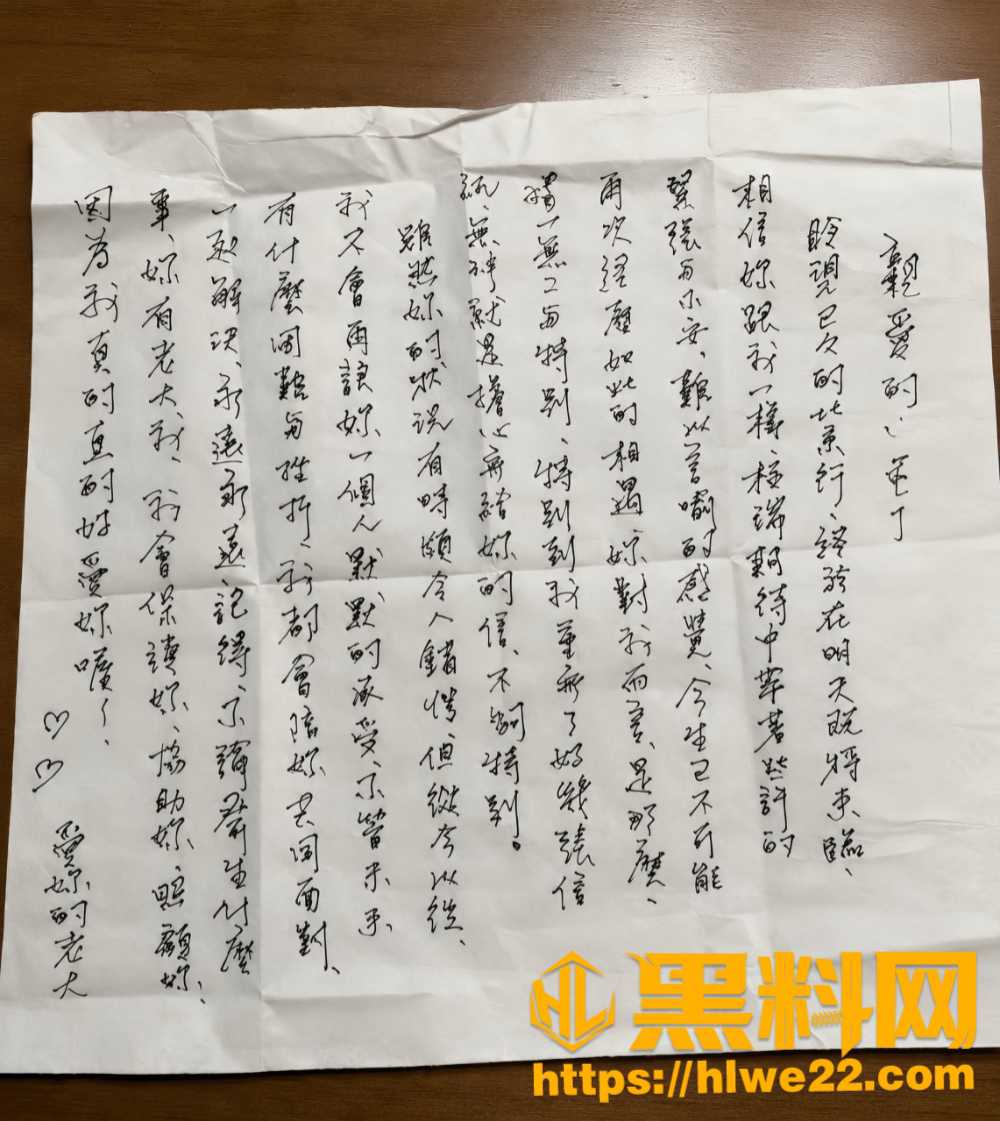 親愛的心童了
盼現已久的北京行、終於在明天既將來臨、
相信妳跟我一樣、極端期待中帶著些許的
緊張與不安、難以言喻的感覺、今生已不可能
再次經歷如此的相遇、妳對我而言、是那麼、
獨一無二與特別、特別到我重寫了好幾張信
紙、無非就是擔心所給妳的信、不夠特別。
雖然妳的狀況有時頗令人錯愕、但從今以後、
我不會再讓妳一個人默默的承受、不管未來
有什麼困難與挫折、我都會陪妳共同面對、
一起解決、永遠永遠記得、不論發生什麼
事、妳有老大、我、我會保護妳、協助妳、照顧妳、
因為我真的真的好愛妳喔！
♡♡ 愛妳的老大
HL 黑料网
https://hlwe22.com